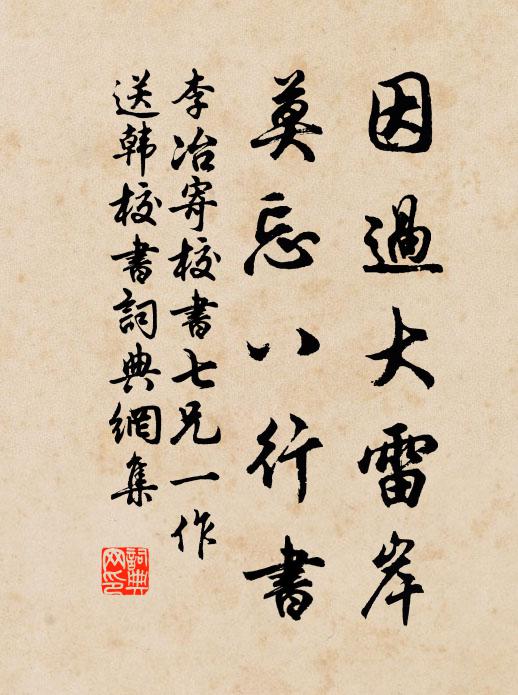 因過大雷岸
莫忘八行書
李冶寄校書七兄一作
送韩校書詞典網集
詞典
网印